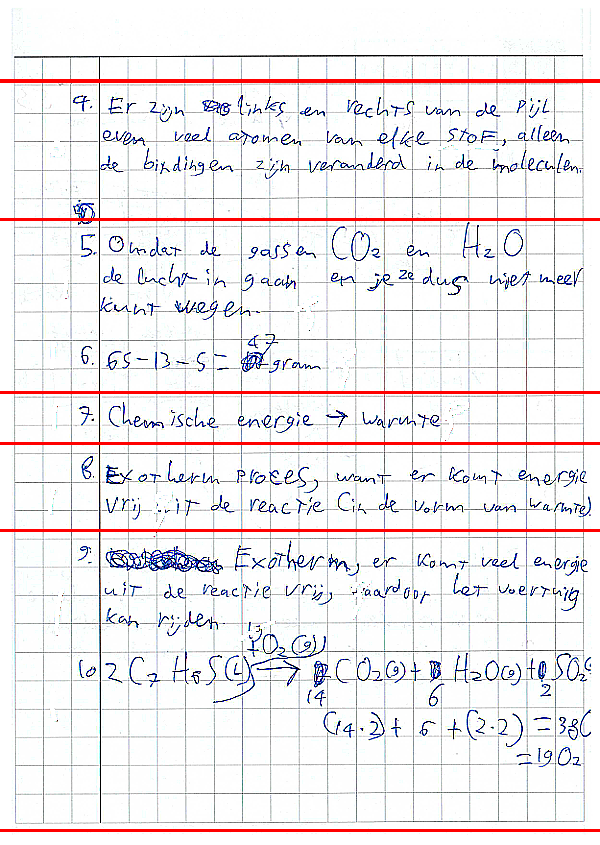 4. Er zijn links en rechts van de pijl
even veel atomen van elke stof, alleen
de bindingen zijn veranderd in de moleculen.
5. Omdat de gassen CO2 en H2O
de lucht in gaan en je ze dus niet meer
kunt wegen.
6. 65-13-5= 47 gram
7. Chemische energie → warmte
8. Exotherm proces, want er komt energie
vrij uit de reactie (in de vorm van warmte)
9. Exotherm, er komt veel energie
uit de reactie vrij, waardoor het voertuig
kan rijden.
10 2 C7 H6S(L) + O2(g) → 14 CO2(g) + 6 H2O(g) + 2 SO2
(14.2) + 6 + (2.2) = 38
= 19 O2